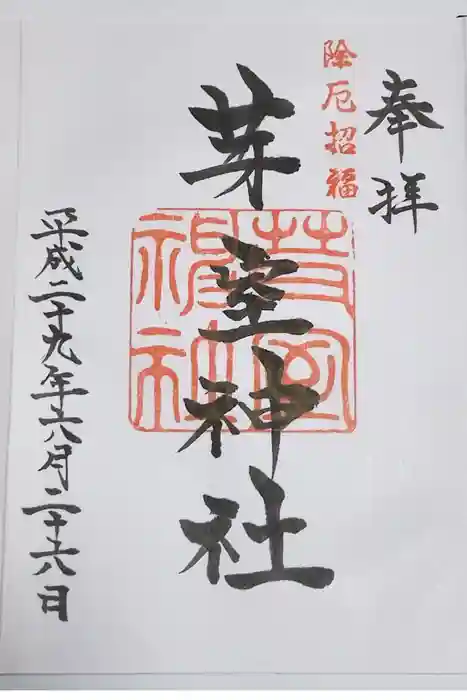 奉拝
除厄招福
芽室神社
芽室神社
平成二十九年六月二十六日